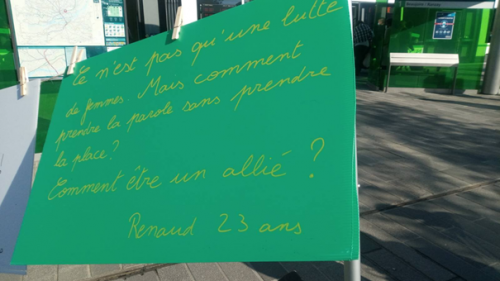 Ce n'est pas qu'une lutte
de femmes. Mais comment
prendre la parole sans prendre
la place?
Comment être un allié ?
Renaud 23 ans